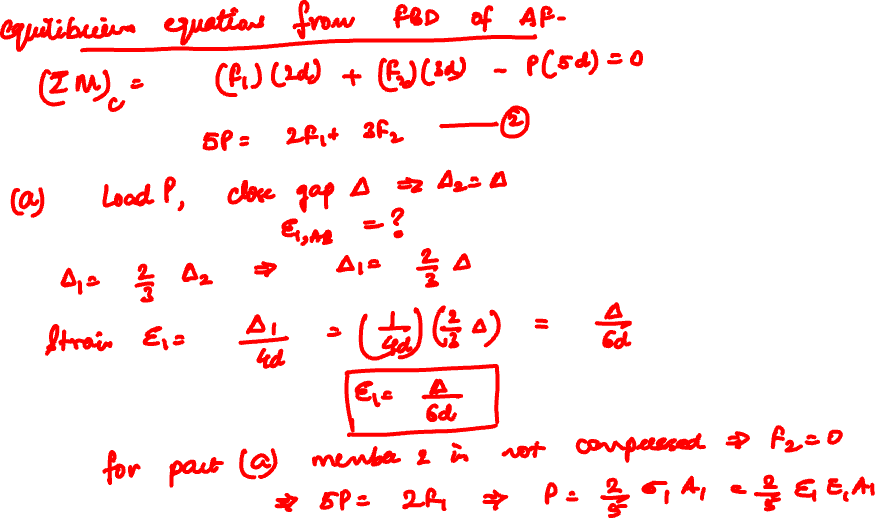 equilibrium equations from FBD of AF-
(ΣM)_C = (F₁)(2d) + (F₂)(3d) - P(5d) = 0
5P = 2F₁ + 3F₂ —— ②
(a) Load P, close gap Δ ⇒ Δ₂ = Δ
ε₁,AB = ?
Δ₁ = 2/3 Δ₂ ⇒ Δ₁ = 2/3 Δ
Strain ε₁ = Δ₁/4d = (1/4d)(2/3 Δ) = Δ/6d
ε₁ = Δ/6d
for part (a) member 2 is not compressed ⇒ F₂ = 0
⇒ 5P = 2F₁ ⇒ P = 2/5 σ₁ A₁ = 2/5 E₁ ε₁ A₁